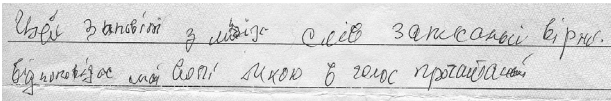 Цей заповіт з моїх слів записаний вірно.
Відповідає моїй волі мною в голос прочитаний